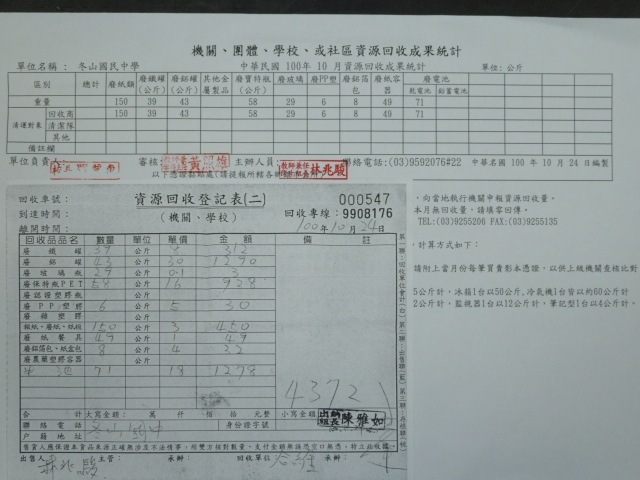 機關、團體、學校、或社區資源回收成果統計
單位名稱： 冬山國民中學 中華民國 100年 10 月資源回收成果統計 單位: 公斤
區別 總計 廢紙類 廢鐵罐(公斤) 廢鋁罐(公斤) 其他金屬製品 廢寶特瓶(公斤) 廢玻璃 廢PP塑 廢鋁箔包 廢紙容器 廢電池
乾電池 鉛蓄電池
重量 150 39 43 58 29 6 8 49 71
清運對象 回收商 150 39 43 58 29 6 8 49 71
清潔隊
其他
備註欄
單位負責人: 審核: 黃照雄 主辦人員: 教師兼任 林兆駿 聯絡電話:(03)9592076#22 中華民國 100 年 10 月 24 日編製
，向當地執行機關申報資源回收量。
本月無回收量，請填零回傳。
TEL:(03)9255206 FAX:(03)9255135
，計算方式如下：
請附上當月份每筆買賣影本憑證，以供上級機關查核比對
5公斤計，冰箱1台以50公斤,冷氣機1台皆以約60公斤計
2公斤計，監視器1台以12公斤計，筆記型1台以4公斤計。
回收車號：
資源回收登記表(二) 000547
到達時間：
(機關、學校) 回收專線：9908176
離開時間： 100年10月24日
回收品品名 數量 單位 單價 金額 備註
廢鐵罐 39 公斤 8 312
廢鋁罐 43 公斤 30 1290
廢玻璃瓶 29 公斤 0.1 3
廢保特瓶PET 58 公斤 16 928
廢認證塑膠瓶 公斤
廢PP塑膠 6 公斤 5 30
廢雜塑膠 公斤
報紙、廢紙、紙板 150 公斤 3 450
廢紙餐具 49 公斤 1 49
廢鋁箔包、紙盒包 8 公斤 4 32
廢農藥塑膠容器 公斤
池 71 18 1278
4372
合計 大寫金額: 萬 仟 佰 拾 元整 小寫金額
出納組長 陳雅如
聯絡電話 冬山國中 身份證字號
戶籍地址
出售人 林兆駿 主管: 承辦: 回收單位 承辦: